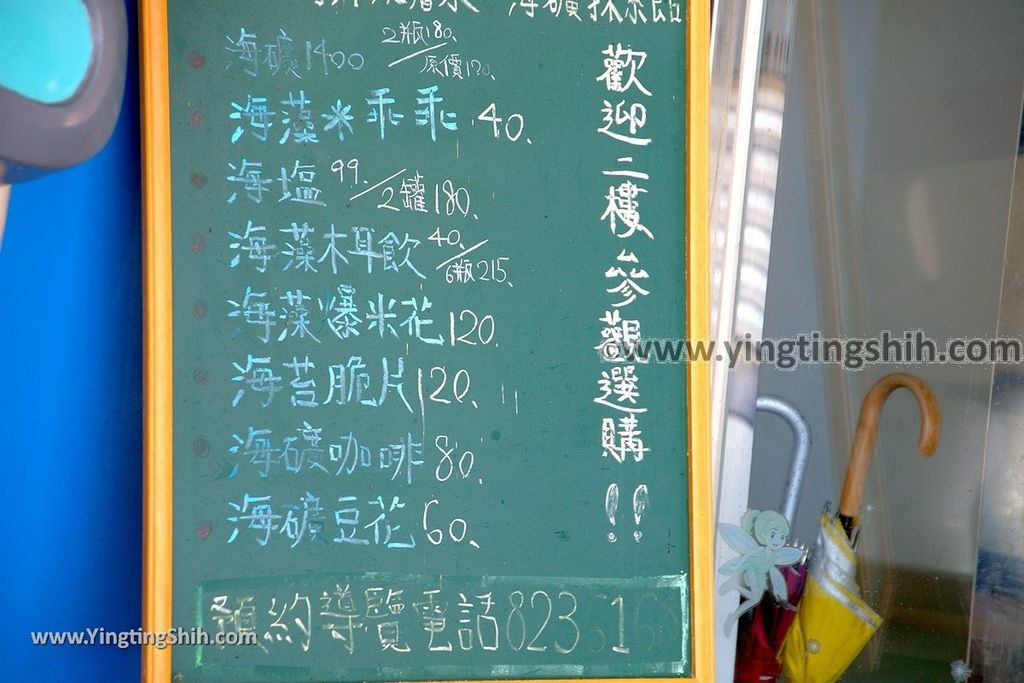 海礦1400 2瓶180、/原價120、
海藻米乖乖 40、
海塩 99、/2罐180、
海藻木耳飲 40、/6瓶215、
海藻爆米花 120、
海苔脆片 120、
海礦咖啡 80、
海礦豆花 60、
歡迎二樓參觀選購!!
預約導覽電話823 616
©www.yingtingshih.com
www.YingtingShih.com